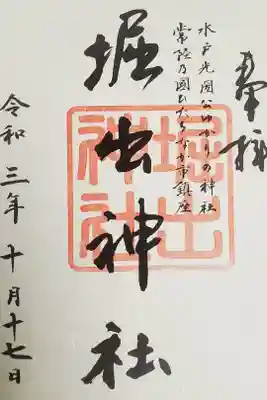 奉拝
水戸光圀公ゆかりの神社
常陸乃國ひたちなか市鎮座
堀出神社
堀出神社
令和三年十月十七日